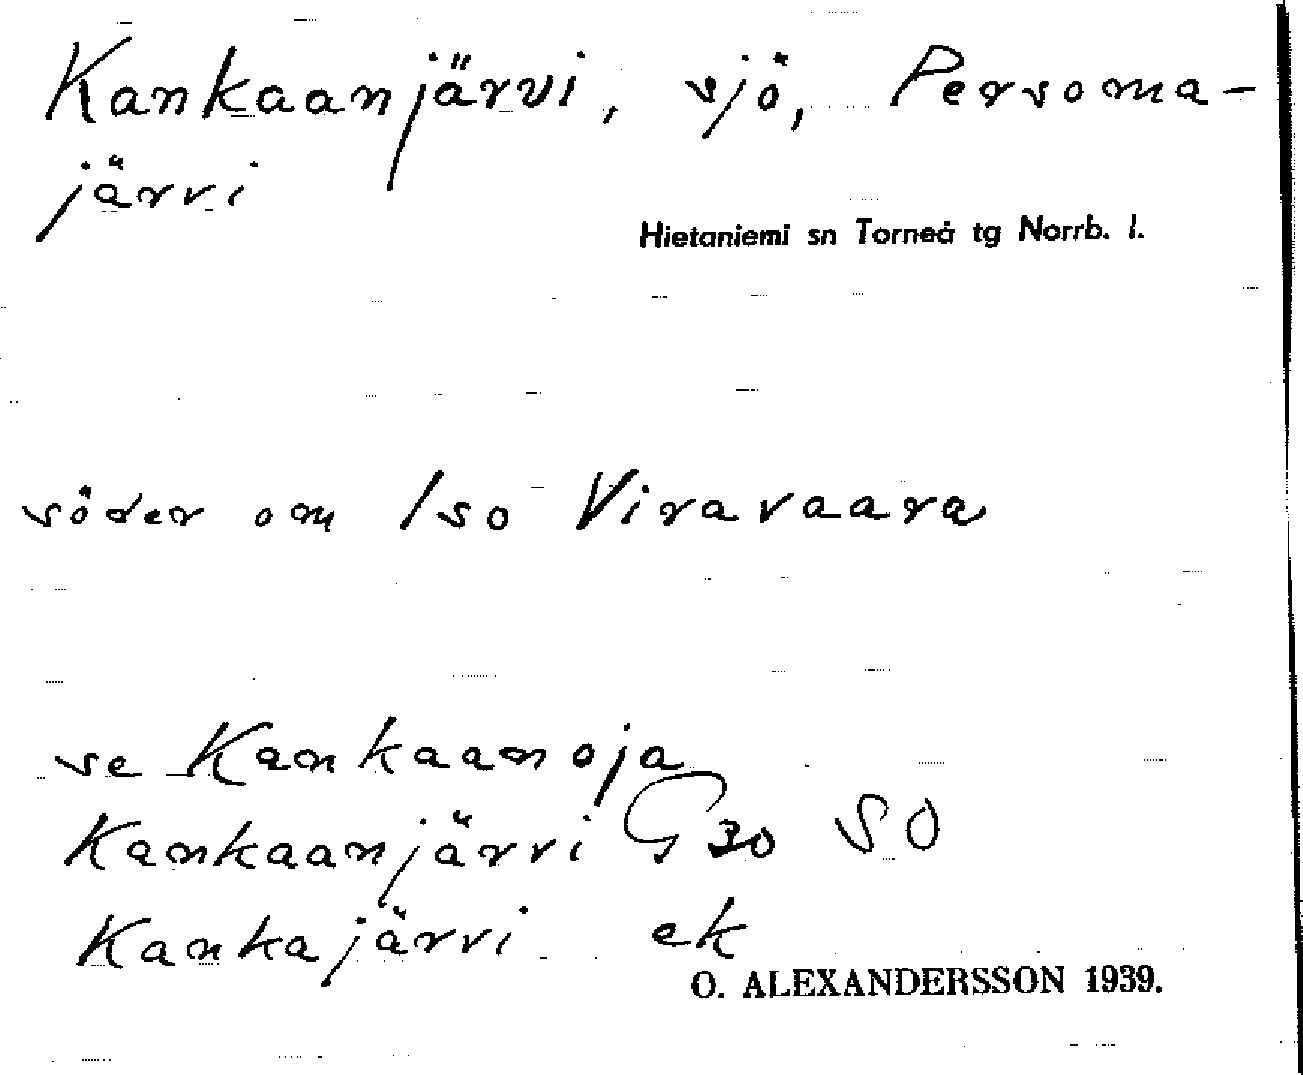 Kankaanjärvi, sjö, Persoma-
järvi
Hietaniemi sn Torneå tg Norrb. l.
söder om Iso Viravaara
se Kankaanoja
Kankaanjärvi G 30 SO
Kankajärvi ek
O. ALEXANDERSSON 1939.